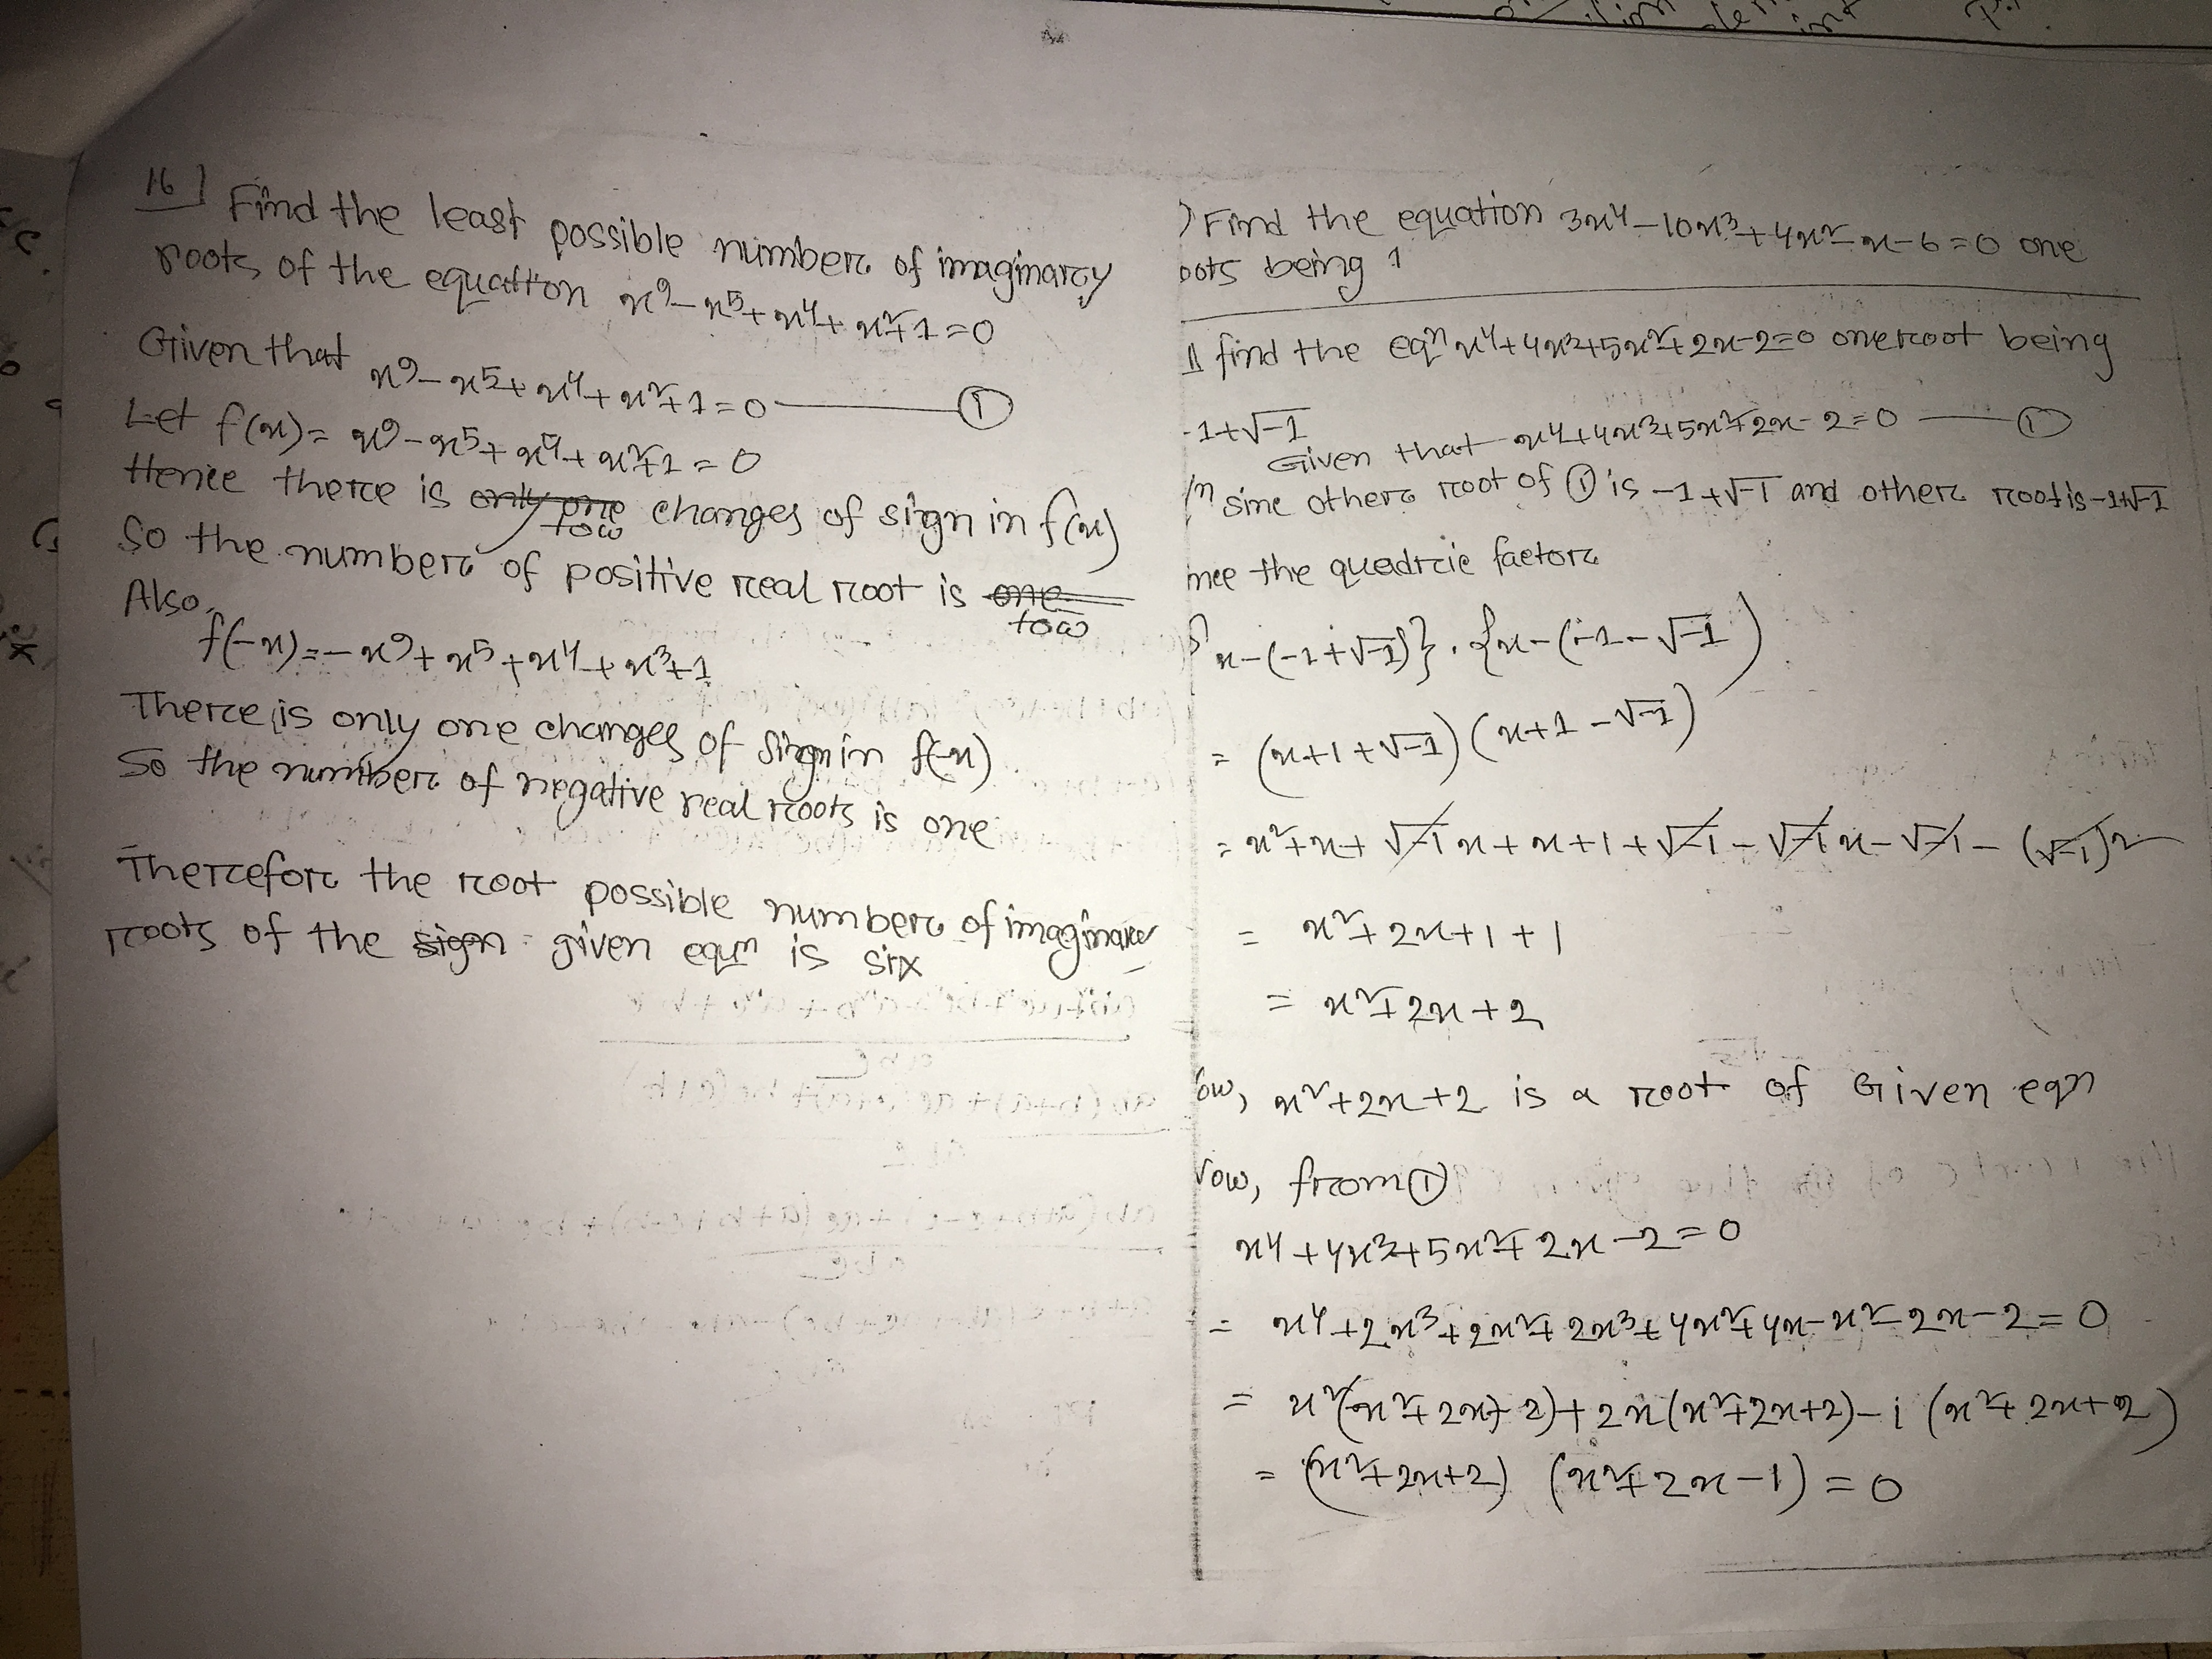 16] Find the least possible numbers of imaginary
roots of the equation x⁹-x⁵+x⁴+x²+1=0
Given that x⁹-x⁵+x⁴+x²+1=0 ①
Let f(x)= x⁹-x⁵+x⁴+x²+1=0
Hence there is only one tow changes of sign in f(x)
So the numbers of positive real root is one tow
Also,
f(-x)=-x⁹+x⁵+x⁴+x³+1
There is only one changes of sign in f(-x)
So the numbers of negative real roots is one
Therefore the root possible numbers of imaginare
roots of the sign given equⁿ is six
) Find the equation 3x⁴-10x³+4x²-x-6=0 one
oots being 1
find the eqⁿ x⁴+4x³+5x²+2x-2=0 one root being
-1+√-1
Given that x⁴+4x³+5x²+2x-2=0 ①
sine others root of ① is -1+√-1 and other root is -1+√-1
nce the quadric factors
x-(-1+√-1)}.{x-(-1-√-1)
= (x+1+√-1)(x+1-√-1)
= x²+x+√-1x+x+1+√-1-√-1x-√-1-(√-1)²
= x²+2x+1+1
= x²+2x+2
ow, x²+2x+2 is a root of Given eqn
ow, from ①
x⁴+4x³+5x²+2x-2=0
= x⁴+2x³+2x²+2x³+4x²+4x-x²-2x-2=0
= x²(x²+2x+2)+2x(x²+2x+2)-1(x²+2x+2)
= (x²+2x+2) (x²+2x-1)=0